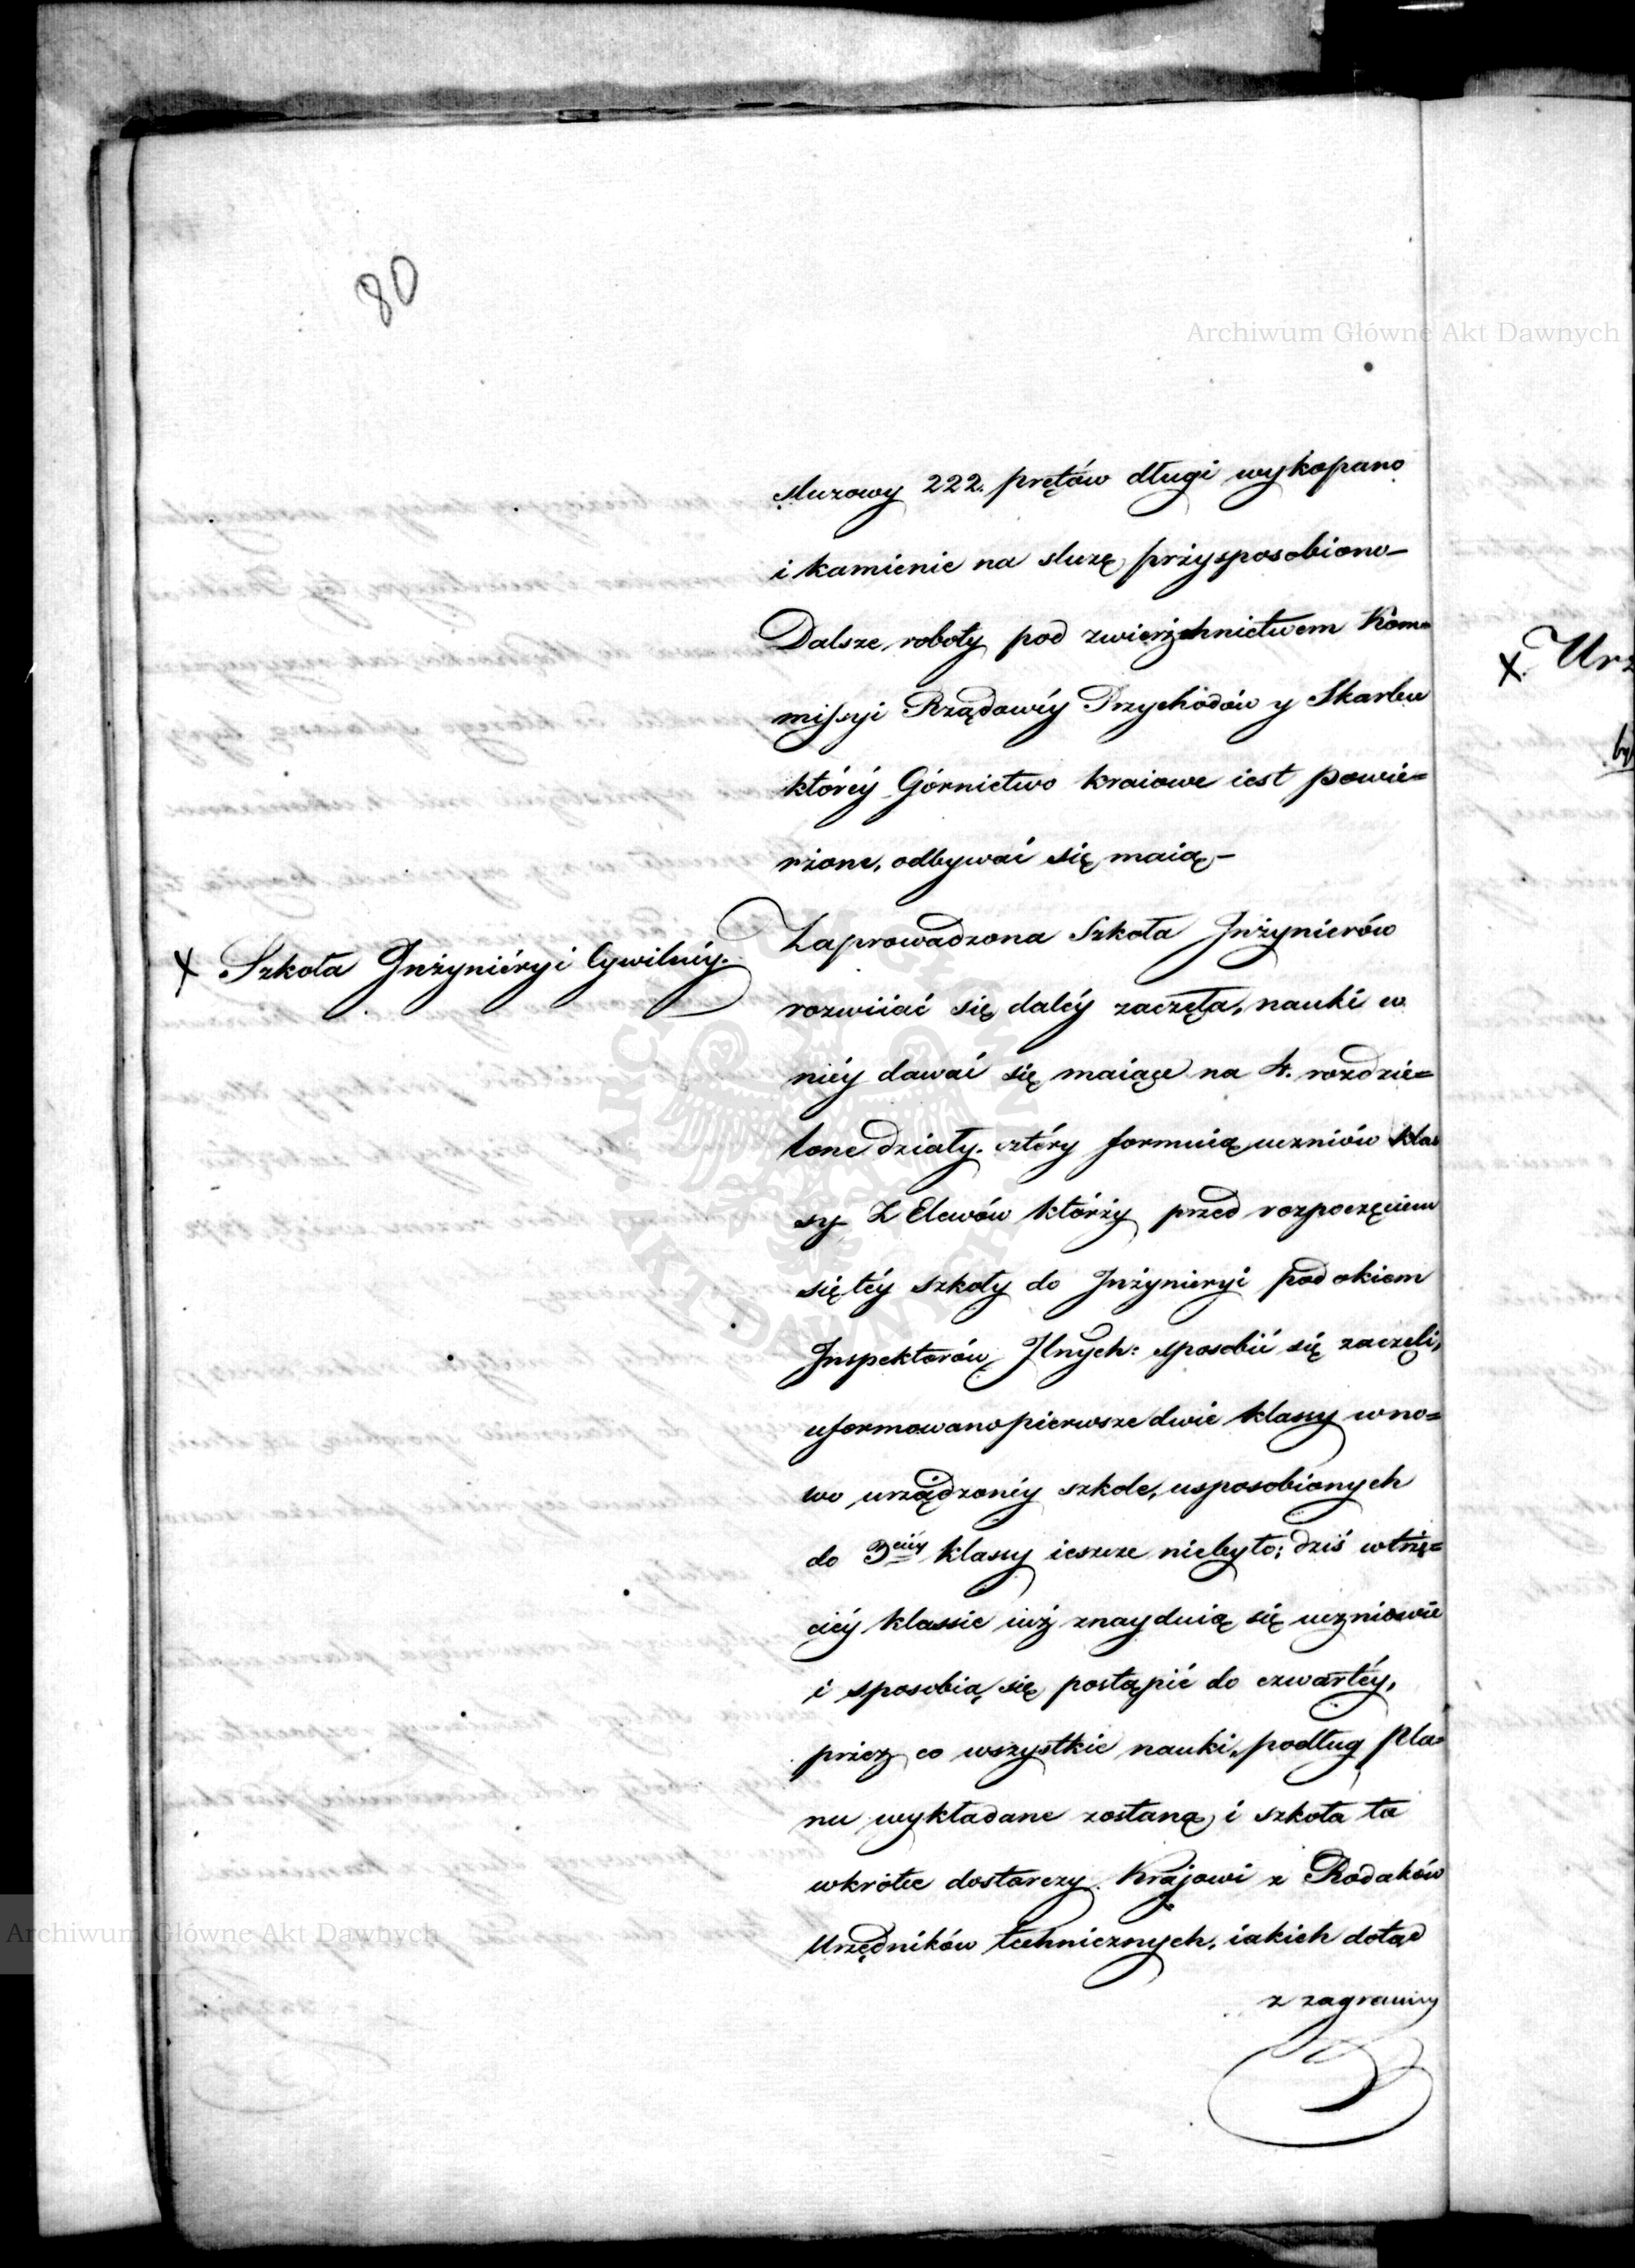 80
Archiwum Główne Akt Dawnych
sluzowy 222. prętów długi wykopano
i kamienie na sluzę przysposobiono—
Dalsze roboty pod zwierzchnictwem Kom=
missyi Rządowéy Przychodów y Skarbu
któréy Górnictwo kraiowe iest powie=
rzone, odbywać się maią—
x Szkoła Inżyniéryi Cywilnéy.
Zaprowadzona Szkoła Inżynierów
rozwiiać się daléy zaczęła, nauki w
niéy dawać się maiące na 4. rozdzie=
lone działy. cztéry formuią uczniów kla=
sy Z Elewów którzy przed rozpoczęciem
się téy szkoły do Inżynieryi pod okiem
Inspektorów Jlnych: sposobić się zaczęli,
uformowano pierwsze dwie klassy w no=
wo urządzonéy szkole, usposobionych
do 3ciéy klassy ieszcze niebyło; dziś w trze=
ciéy klassie iuż znayduią się uczniowie
i sposobią się postąpić do czwartéy,
przez co wszystkie nauki, podług pla=
nu wykładane zostaną, i szkoła ta
wkrótce dostarczy Krajowi z Rodaków
Urzędników technicznych, iakich dotąd
z zagranicy
x. Urz
ARCHIWUM GŁÓWNE AKT DAWNYCH
Archiwum Główne Akt Dawnych